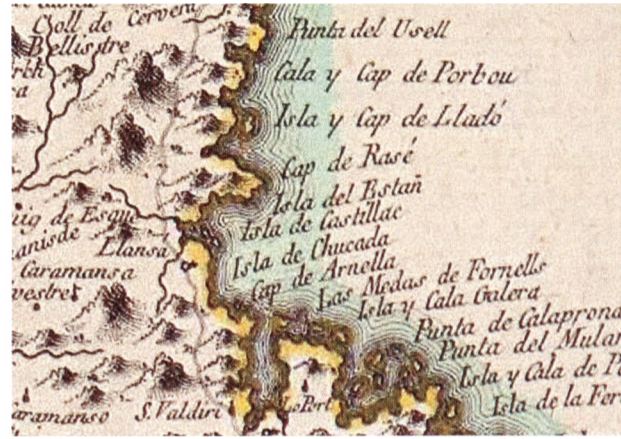 Coll de Cervera
Bellistre
Punta del Usell
Cala y Cap de Porbou
Isla y Cap de Lladó
Cap de Rasé
Isla del Estañ
Isla de Castillac
Isla de Chucada
Cap de Arnella
Las Medas de Fornells
Isla y Cala Galera
Punta de Calaprona
Punta del Mular
Isla y Cala de
Isla de la
de Esque
Llansá
Caramansa
vestre
aramanso
S. Valdiri